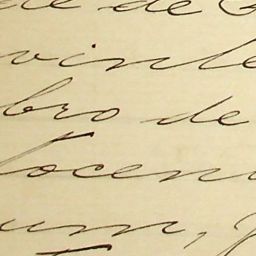 de de
vinte
bro de
locen
um,